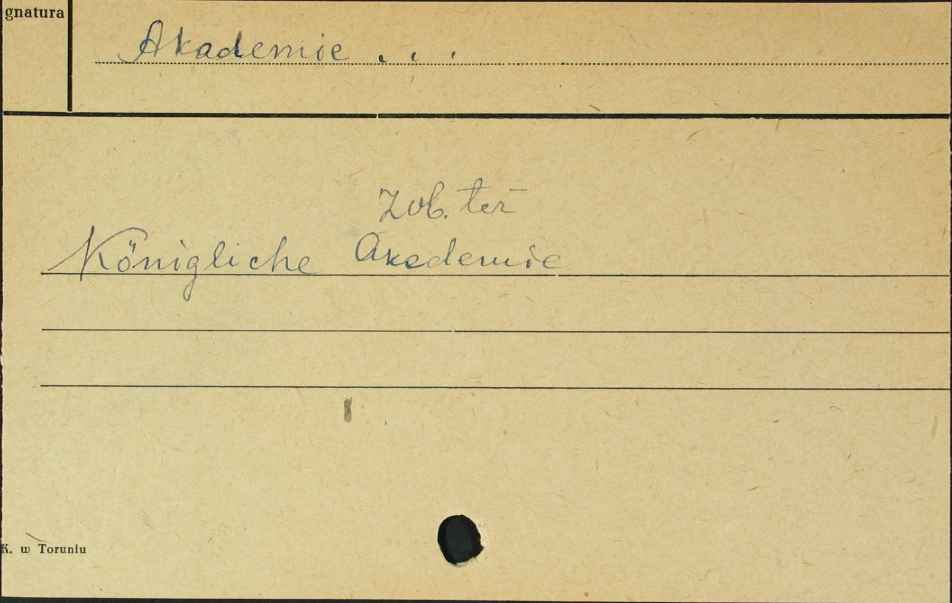 gnatura
Akademie . . .
Zob. też
Königliche Akademie
K. w Toruniu